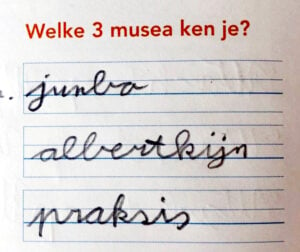 Welke 3 musea ken je?
junbo
albertkijn
praksis